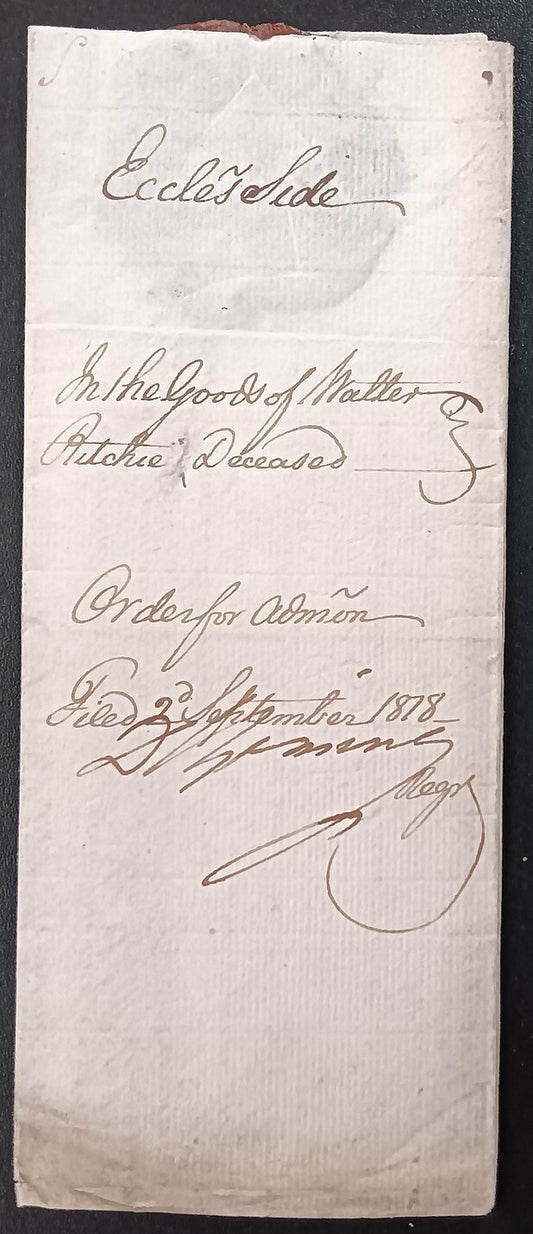 Eccle's Side
In the Goods of Walter
Ritchie Deceased
Order for Admõn
Filed 2d September 1818
Regr